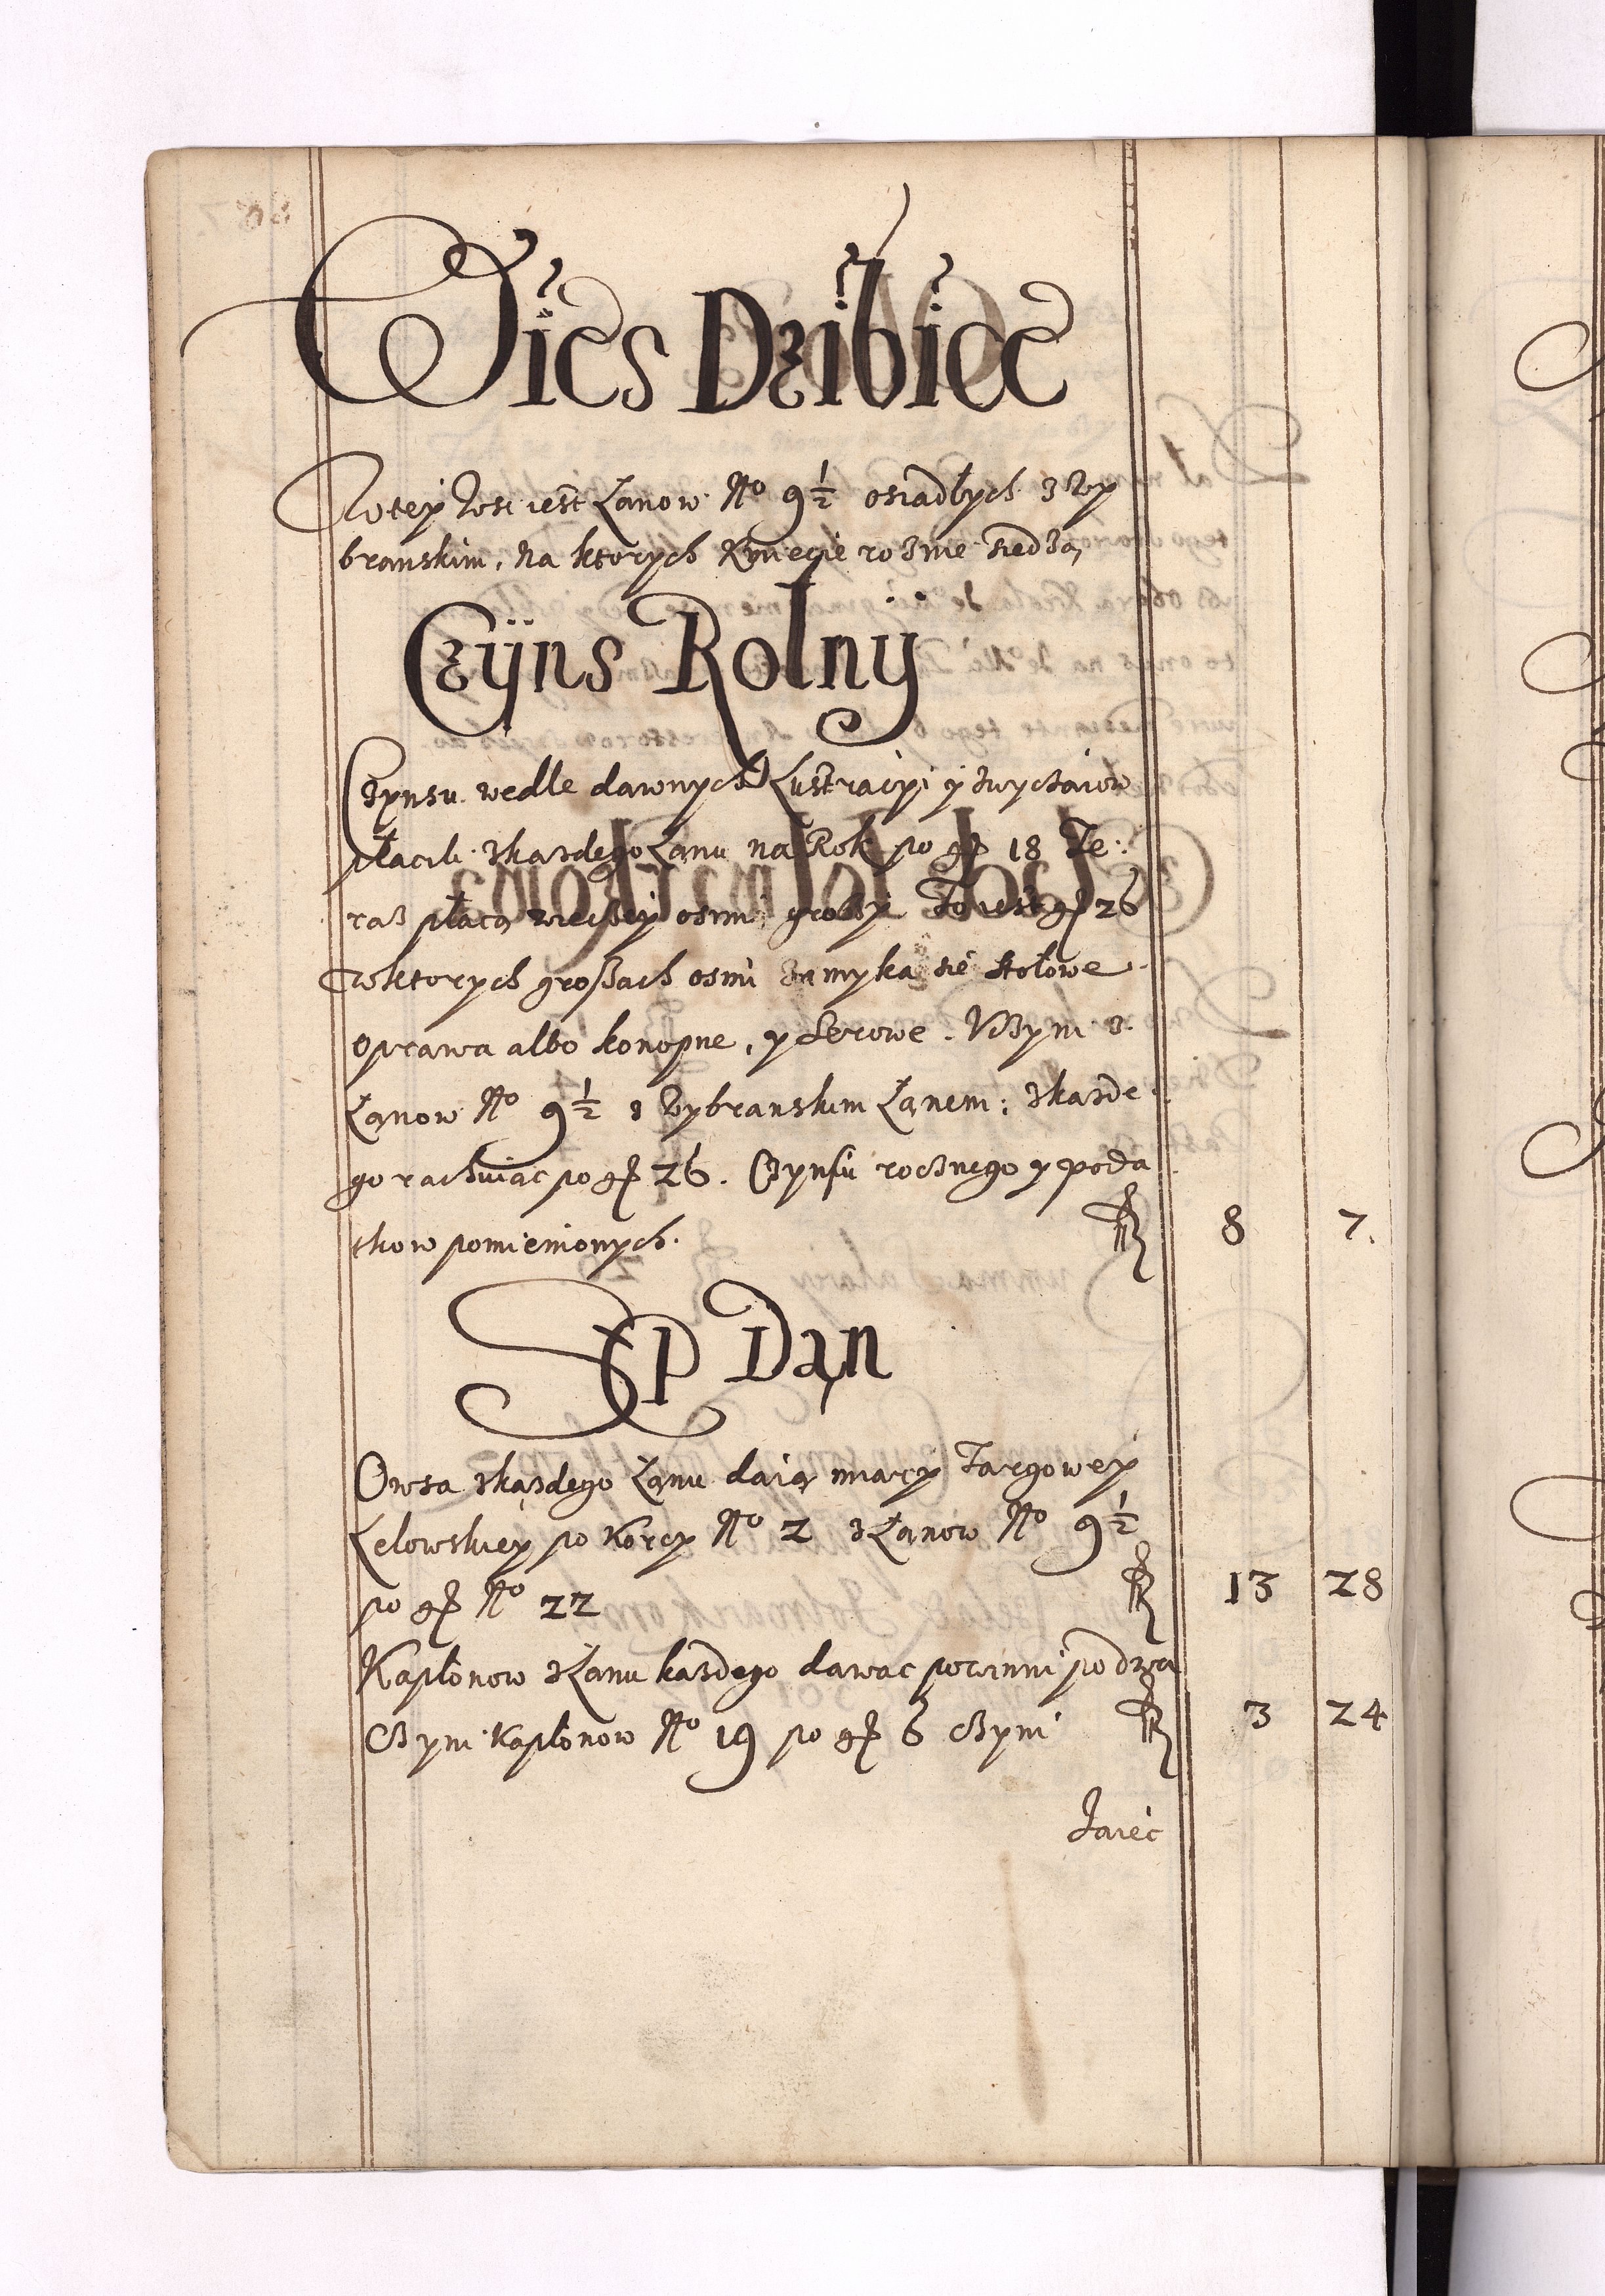 Wies Dzibice
W tey Wsi iest Łanow No 9½ osiadłych z Wy
branskim, na ktorych Kmiecie rożnie siedzą,
Czÿns Rolny
Czynsu wedle dawnych Lustracyi y zwyczaiow
płacili zkazdego Łanu na Rok po gr 18 Te:
raz płacą wiecey osmi groszy To iest gr 26
W ktorych groszach osmi zamyka sie stołowe
oprawa albo konopne, y Serowe. Uczyni z
Łanow No 9½ z Wybranskim Łanem; zkazde
go rachuiąc po gr 26. Czynsu rocznego y poda
tkow pomienionych. 8 7.
SP Dan
Owsa zkazdego Łanu daią miary Targowey
Lelowskiey po korcy No 2 z Łanow No 9½
po gr No 22 13 28
Kapłonow z Łanu kazdego dawac powinni po dwa
Czyni Kapłonow No 19 po gr 6 czyni 3 24
Jaiec